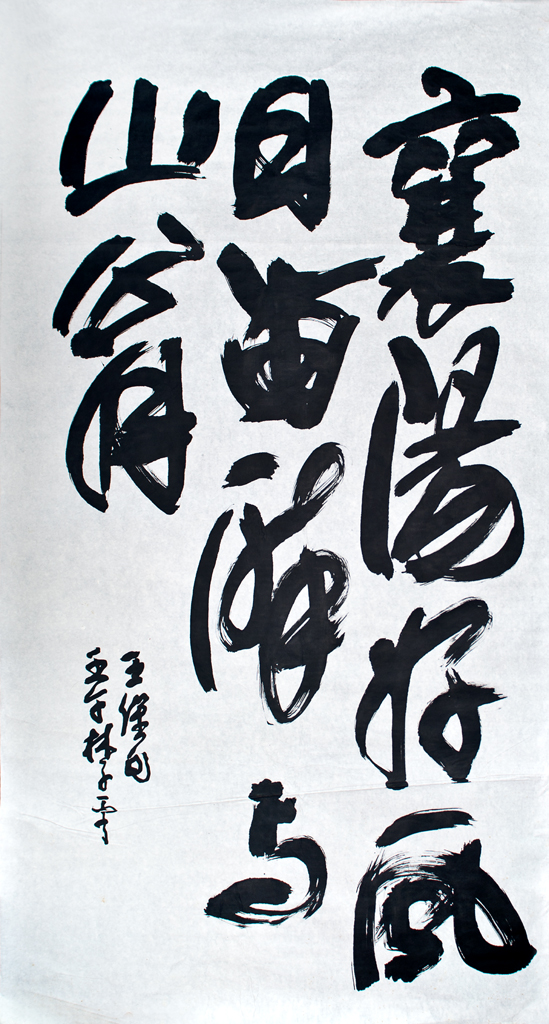 襄陽好風
日留醉与
山翁
王維句
壬午林子